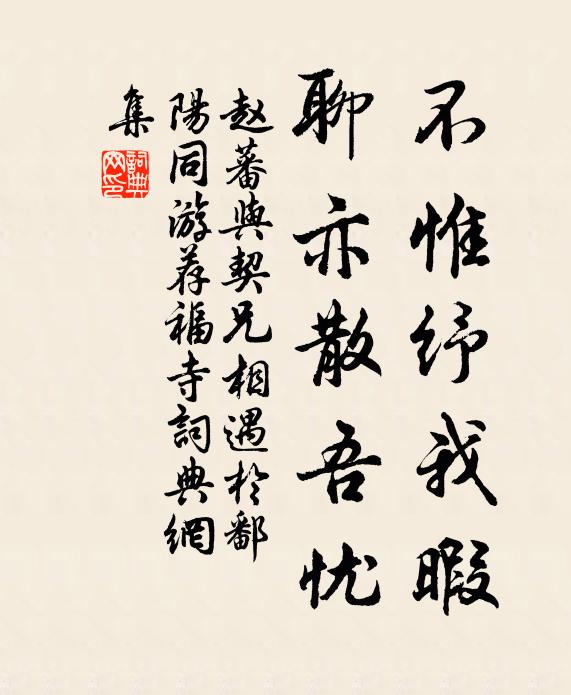 不惟纾我暇
聊亦散吾忧
赵蕃與契兄相遇於鄱
陽同游荐福寺詞典網
集
詞典网印